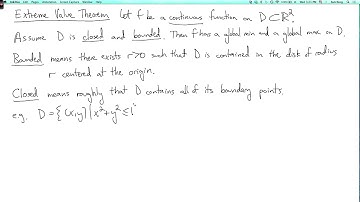 Extreme Value Theorem Let f be a continuous function on D⊂ℝ².
Assume D is closed and bounded. Then f has a global min and a global max on D.
Bounded means there exists r>0 such that D is contained in the disk of radius
r centered at the origin.
Closed means roughly that D contains all of its boundary points.
e.g. D = {(x,y) | x²+y² ≤ 1